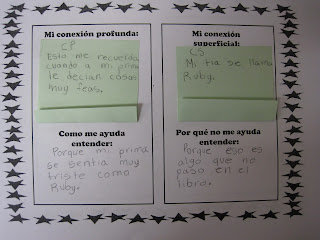 Mi conexión profunda:
CP
Esto me recuerda
cuando a mi prima
le decian cosas
muy feas.
Como me ayuda
entender:
Porque mi prima
se sentia muy
triste como
Ruby.
Mi conexión
superficial:
CS
Mi tia se llama
Ruby.
Por qué no me ayuda
entender:
Porque eso es
algo que no
paso en el
libro.